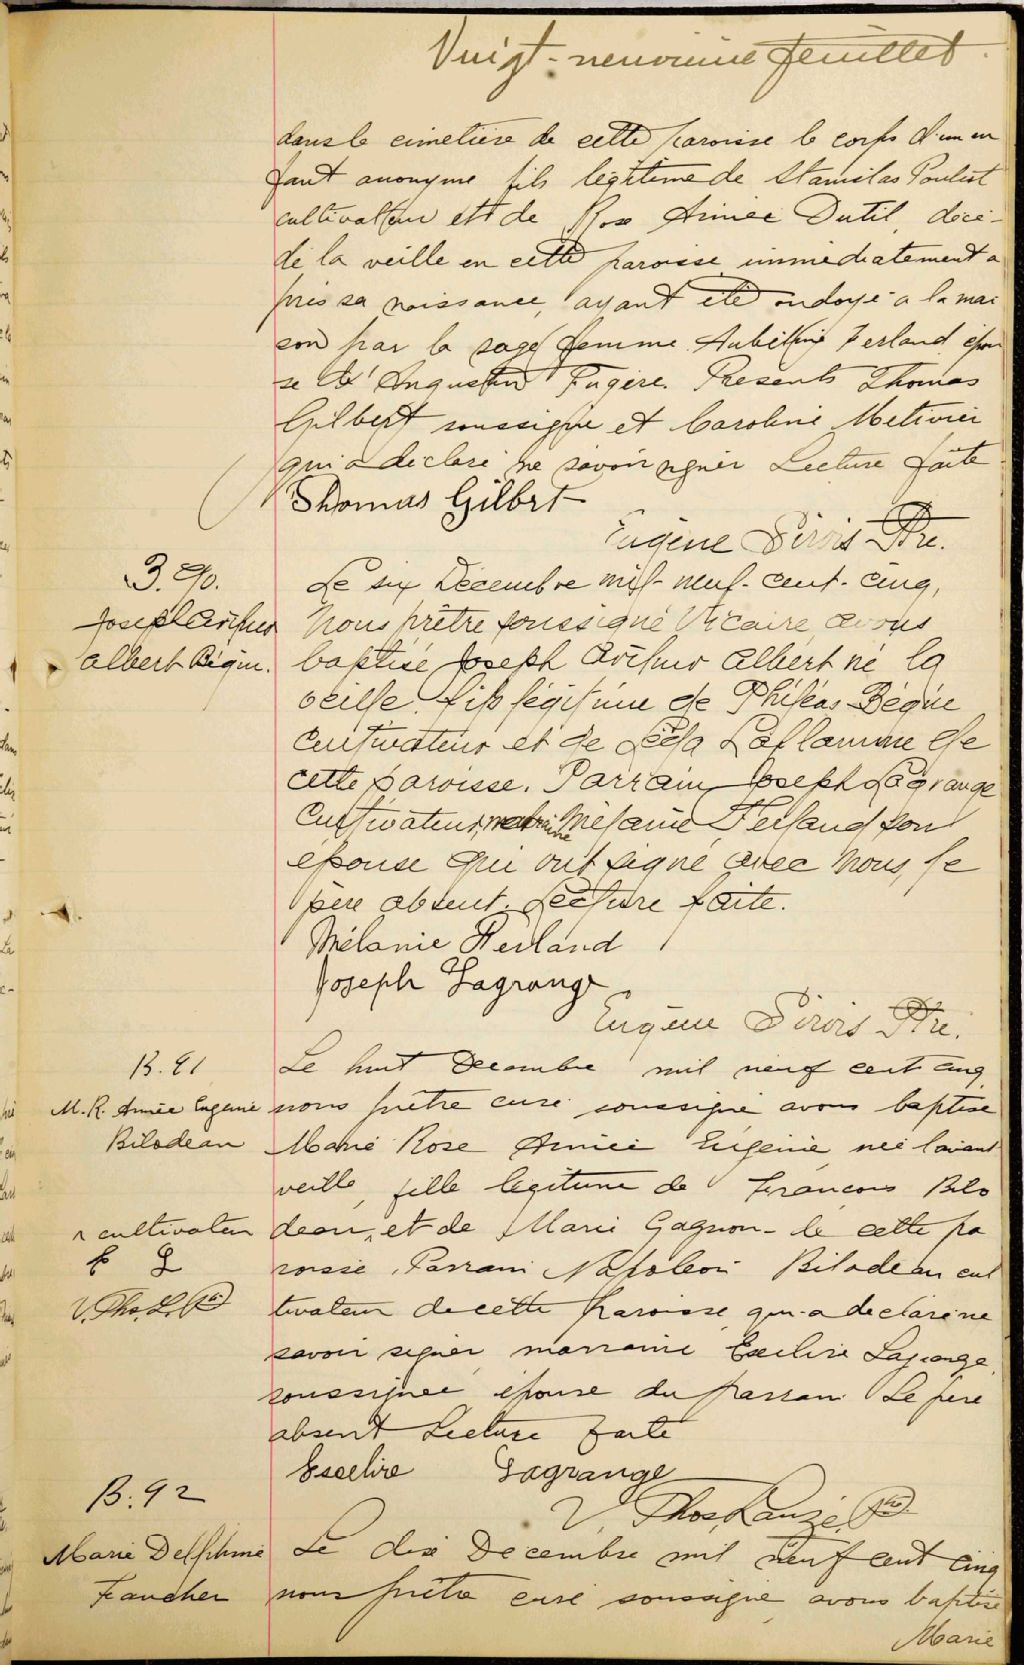 Vingt-neuvième feuillet.
dans le cimetière de cette paroisse le corps d'un en
fant anonyme fils légitime de Stanislas Pouliot
cultivateur et de Rose Aimée Dutil, décé-
dé la veille en cette paroisse immédiatement a
près sa naissance, ayant été ondoyé à la mai
son par la sage femme Aubéline Ferland épou
se d'Augustin Fugère. Présents Thomas
Gilbert soussigné et Caroline Métivier
qui a déclaré ne savoir signer Lecture faite
Thomas Gilbert
Eugène Sirois Ptre.
B. 90.
Joseph Arthur
Albert Bégin.
Le six Décembre mil-neuf-cent-cinq,
Nous prêtre soussigné Vicaire avons
baptisé Joseph Arthur Albert né la
veille, fils légitime de Philéas Bégin
cultivateur et de Léda Laflamme de
cette paroisse. Parrain Joseph Lagrange
Cultivateur, marraine Mélanie Ferland son
épouse qui ont signé avec nous, le
père absent. Lecture faite.
Mélanie Ferland
Joseph Lagrange
Eugène Sirois Ptre.
B. 91
M. R. Aimée Eugénie
Bilodeau
Le huit Decembre mil neuf cent cinq
nous prêtre curé soussigné avons baptisé
Marie Rose Aimée Eugénie née l'avant
veille, fille légitime de François Bilo
deau, et de Marie Gagnon de cette pa
roisse. Parrain Napoléon Bilodeau cul
tivateur de cette paroisse qui a déclaré ne
savoir signer, marraine Exelire Lagrange
soussignée, épouse du parrain Le père
absent Lecture faite
cultivateur
E L
V. Tho. L. Ptre
Exelire Lagrange
V. Thos. Lauzé, Ptre
B. 92
Marie Delphine
Faucher
Le dix Decembre mil neuf cent cinq
nous prêtre curé soussigné avons baptisé
Marie